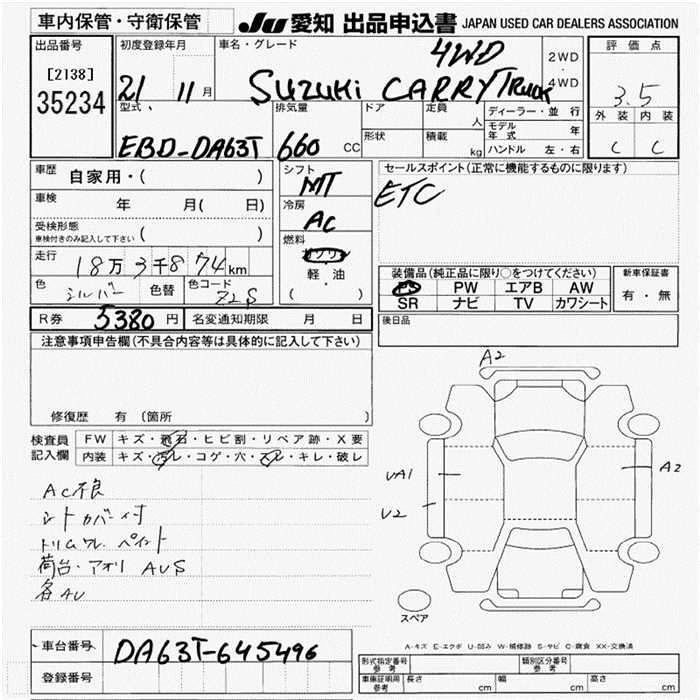 車内保管・守衛保管
JU 愛知 出品申込書 JAPAN USED CAR DEALERS ASSOCIATION
出品番号
[2138]
35234
初度登録年月
21 11月
車名・グレード
4WD
SUZUKI CARRY TRUCK
2WD
・
4WD
評価点
3.5
外装 内装
C C
型式
EBD-DA63T
排気量
660 CC
ドア
形状
定員
人
積載
kg
ディーラー・並行
モデル年式 年
ハンドル 左・右
車歴
自家用・( )
車検
年 月( 日)
受検形態
車検付きのみ記入して下さい ( )
走行
18万3千874km
色 シルバー 色替 色コード Z2S
シフト
MT
冷房
AC
燃料
ガソリン
軽・油
( )
セールスポイント(正常に機能するものに限ります)
ETC
装備品(純正品に限り○をつけてください)
PS PW エアB AW
SR ナビ TV カワシート
新車保証書
有・無
R券 5380円 名変通知期限 月 日
後日品
注意事項申告欄(不具合内容等は具体的に記入して下さい)
修復歴 有 (箇所 )
検査員
記入欄
FW キズ・飛石・ヒビ割・リペア跡・X要
内装 キズ・汚レ・コゲ・穴・スレ・キレ・破レ
AC不良
シートカバー付
トリムワレ ペイント
荷台・アオリ AUS
各AU
A2
UA1
U2
A2
スペア
A-キズ E-エクボ U-凹み W-補修跡 S-サビ C-腐食 XX-交換済
車台番号 DA63T-645496
登録番号
形式指定番号 参考
類別区分番号 参考
車庫証明用 参考 長さ cm 幅 cm 高さ cm